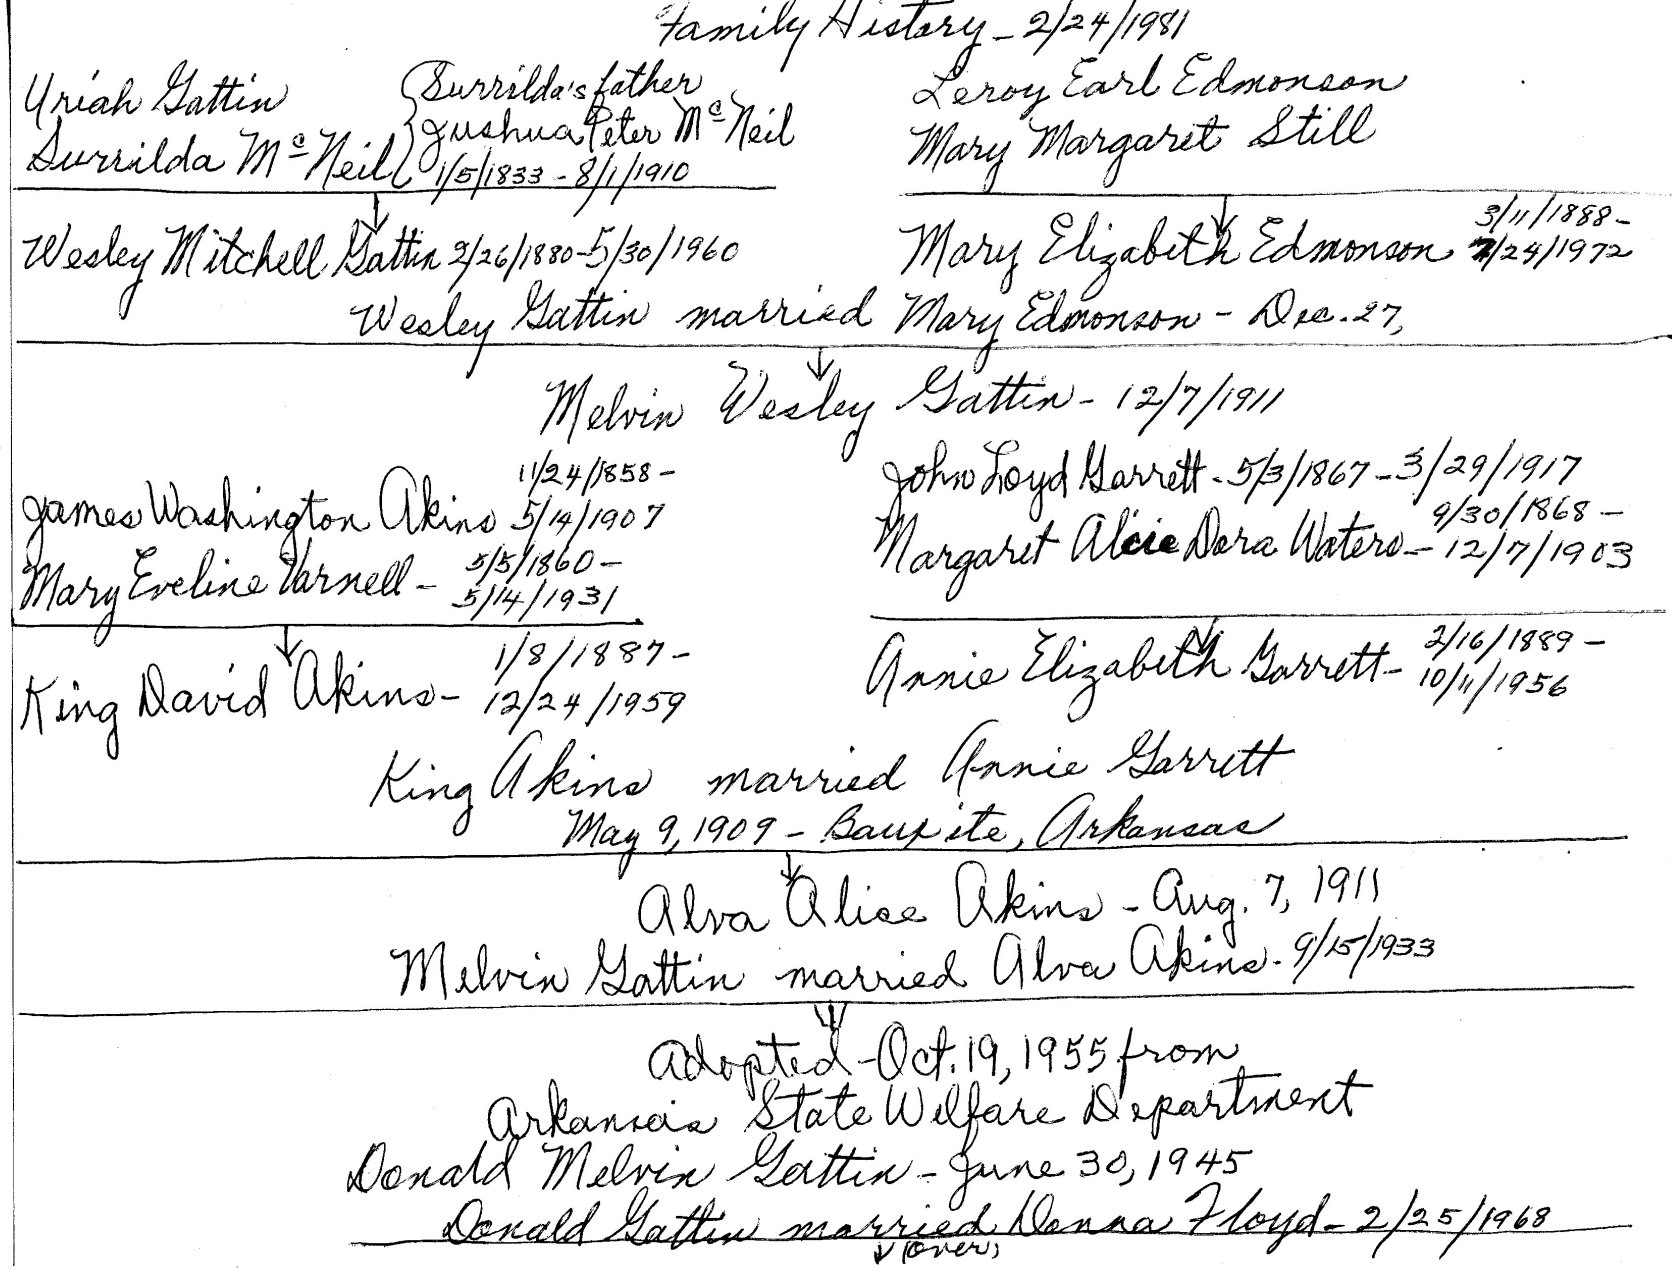 Family History - 2/24/1981
Uriah Gattin
Surrilda McNeil
Surrilda's father
Jushua Peter McNeil
1/5/1833 - 8/1/1910
Leroy Earl Edmonson
Mary Margaret Still
Wesley Mitchell Gattin 2/26/1880-5/30/1960
Mary Elizabeth Edmonson 3/11/1888 -
7/24/1972
Wesley Gattin married Mary Edmonson - Dec. 27,
Melvin Wesley Gattin - 12/7/1911
James Washington Akins 11/24/1858 -
5/14/1907
Mary Eveline Varnell - 5/5/1860 -
5/14/1931
John Loyd Garrett - 5/3/1867 - 3/29/1917
Margaret Alcie Dora Waters - 9/30/1868 -
12/7/1903
King David Akins - 1/8/1887 -
12/24/1959
Annie Elizabeth Garrett - 2/16/1889 -
10/11/1956
King Akins married Annie Garrett
May 9, 1909 - Bauxite, Arkansas
Alva Alice Akins - Aug. 7, 1911
Melvin Gattin married Alva Akins - 9/15/1933
Adopted - Oct. 19, 1955 from
Arkansas State Welfare Department
Donald Melvin Gattin - June 30, 1945
Donald Gattin married Donna Floyd - 2/25/1968
(over)